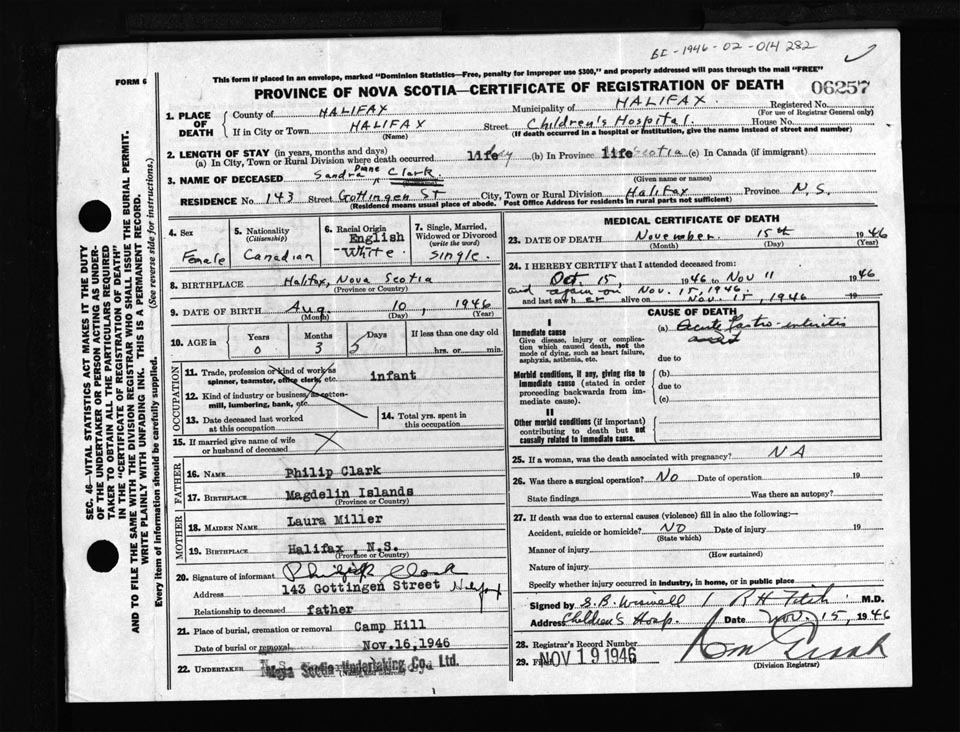 BE-1946-02-014282
FORM 6
This form if placed in an envelope, marked "Dominion Statistics—Free, penalty for improper use $300," and properly addressed will pass through the mail "FREE"
PROVINCE OF NOVA SCOTIA—CERTIFICATE OF REGISTRATION OF DEATH
06257
1. PLACE OF DEATH
County of HALIFAX Municipality of HALIFAX. Registered No.
(For use of Registrar General only)
If in City or Town HALIFAX Street Children's Hospital. House No.
(Name) (If death occurred in a hospital or institution, give the name instead of street and number)
2. LENGTH OF STAY (in years, months and days)
(a) In City, Town or Rural Division where death occurred life (b) In Province life (c) In Canada (if immigrant)
3. NAME OF DECEASED Sandra Diane Clark.
(Given name or names)
RESIDENCE No. 143 Street Gottingen St City, Town or Rural Division Halifax Province N.S.
(Residence means usual place of abode. Post Office Address for residents in rural parts not sufficient)
4. Sex Female
5. Nationality (Citizenship) Canadian
6. Racial Origin English White
7. Single, Married, Widowed or Divorced (write the word) Single.
8. BIRTHPLACE Halifax, Nova Scotia
(Province or Country)
9. DATE OF BIRTH Aug. 10, 1946
(Month) (Day) (Year)
10. AGE in Years 0 Months 3 Days 5 If less than one day old
hrs. or min.
OCCUPATION
11. Trade, profession or kind of work as spinner, teamster, office clerk, etc. infant
12. Kind of industry or business, as cotton-mill, lumbering, bank, etc.
13. Date deceased last worked at this occupation
14. Total yrs. spent in this occupation
15. If married give name of wife or husband of deceased
FATHER
16. NAME Philip Clark
17. BIRTHPLACE Magdelin Islands
(Province or Country)
MOTHER
18. MAIDEN NAME Laura Miller
19. BIRTHPLACE Halifax, N.S.
(Province or Country)
20. Signature of informant Philip Clark
Address 143 Gottingen Street Halifax
Relationship to deceased father
21. Place of burial, cremation or removal Camp Hill
Date of burial or removal Nov.16,1946
22. UNDERTAKER Nova Scotia Undertaking Co. Ltd.
(Name and address)
MEDICAL CERTIFICATE OF DEATH
23. DATE OF DEATH November 15th 1946
(Month) (Day) (Year)
24. I HEREBY CERTIFY that I attended deceased from:
Oct. 15 1946 to Nov 11 1946
and again on Nov. 15, 1946.
and last saw her alive on Nov. 15, 1946 19
CAUSE OF DEATH
I
Immediate cause
Give disease, injury or complication which caused death, not the mode of dying, such as heart failure, asphyxia, asthenia, etc.
(a) Acute Gastro-enteritis
due to
Morbid conditions, if any, giving rise to immediate cause (stated in order proceeding backwards from immediate cause).
(b)
due to
(c)
II
Other morbid conditions (if important) contributing to death but not causally related to immediate cause.
25. If a woman, was the death associated with pregnancy? NA
26. Was there a surgical operation? No Date of operation 19
State findings Was there an autopsy?
27. If death was due to external causes (violence) fill in also the following:—
Accident, suicide or homicide? NO Date of injury 19
(State which)
Manner of injury
(How sustained)
Nature of injury
Specify whether injury occurred in industry, in home, or in public place
Signed by S.B. Wiswell / R H Fitch M.D.
Address Children's Hosp. Date Nov. 15, 1946
28. Registrar's Record Number
29. Filed NOV 19 1946
(Division Registrar)
SEC. 46—VITAL STATISTICS ACT MAKES IT THE DUTY
OF THE UNDERTAKER OR PERSON ACTING AS UNDER-
TAKER TO OBTAIN ALL THE PARTICULARS REQUIRED
IN THE "CERTIFICATE OF REGISTRATION OF DEATH"
AND TO FILE THE SAME WITH THE DIVISION REGISTRAR WHO SHALL ISSUE THE BURIAL PERMIT.
WRITE PLAINLY WITH UNFADING INK. THIS IS A PERMANENT RECORD.
Every item of information should be carefully supplied. (See reverse side for instructions.)